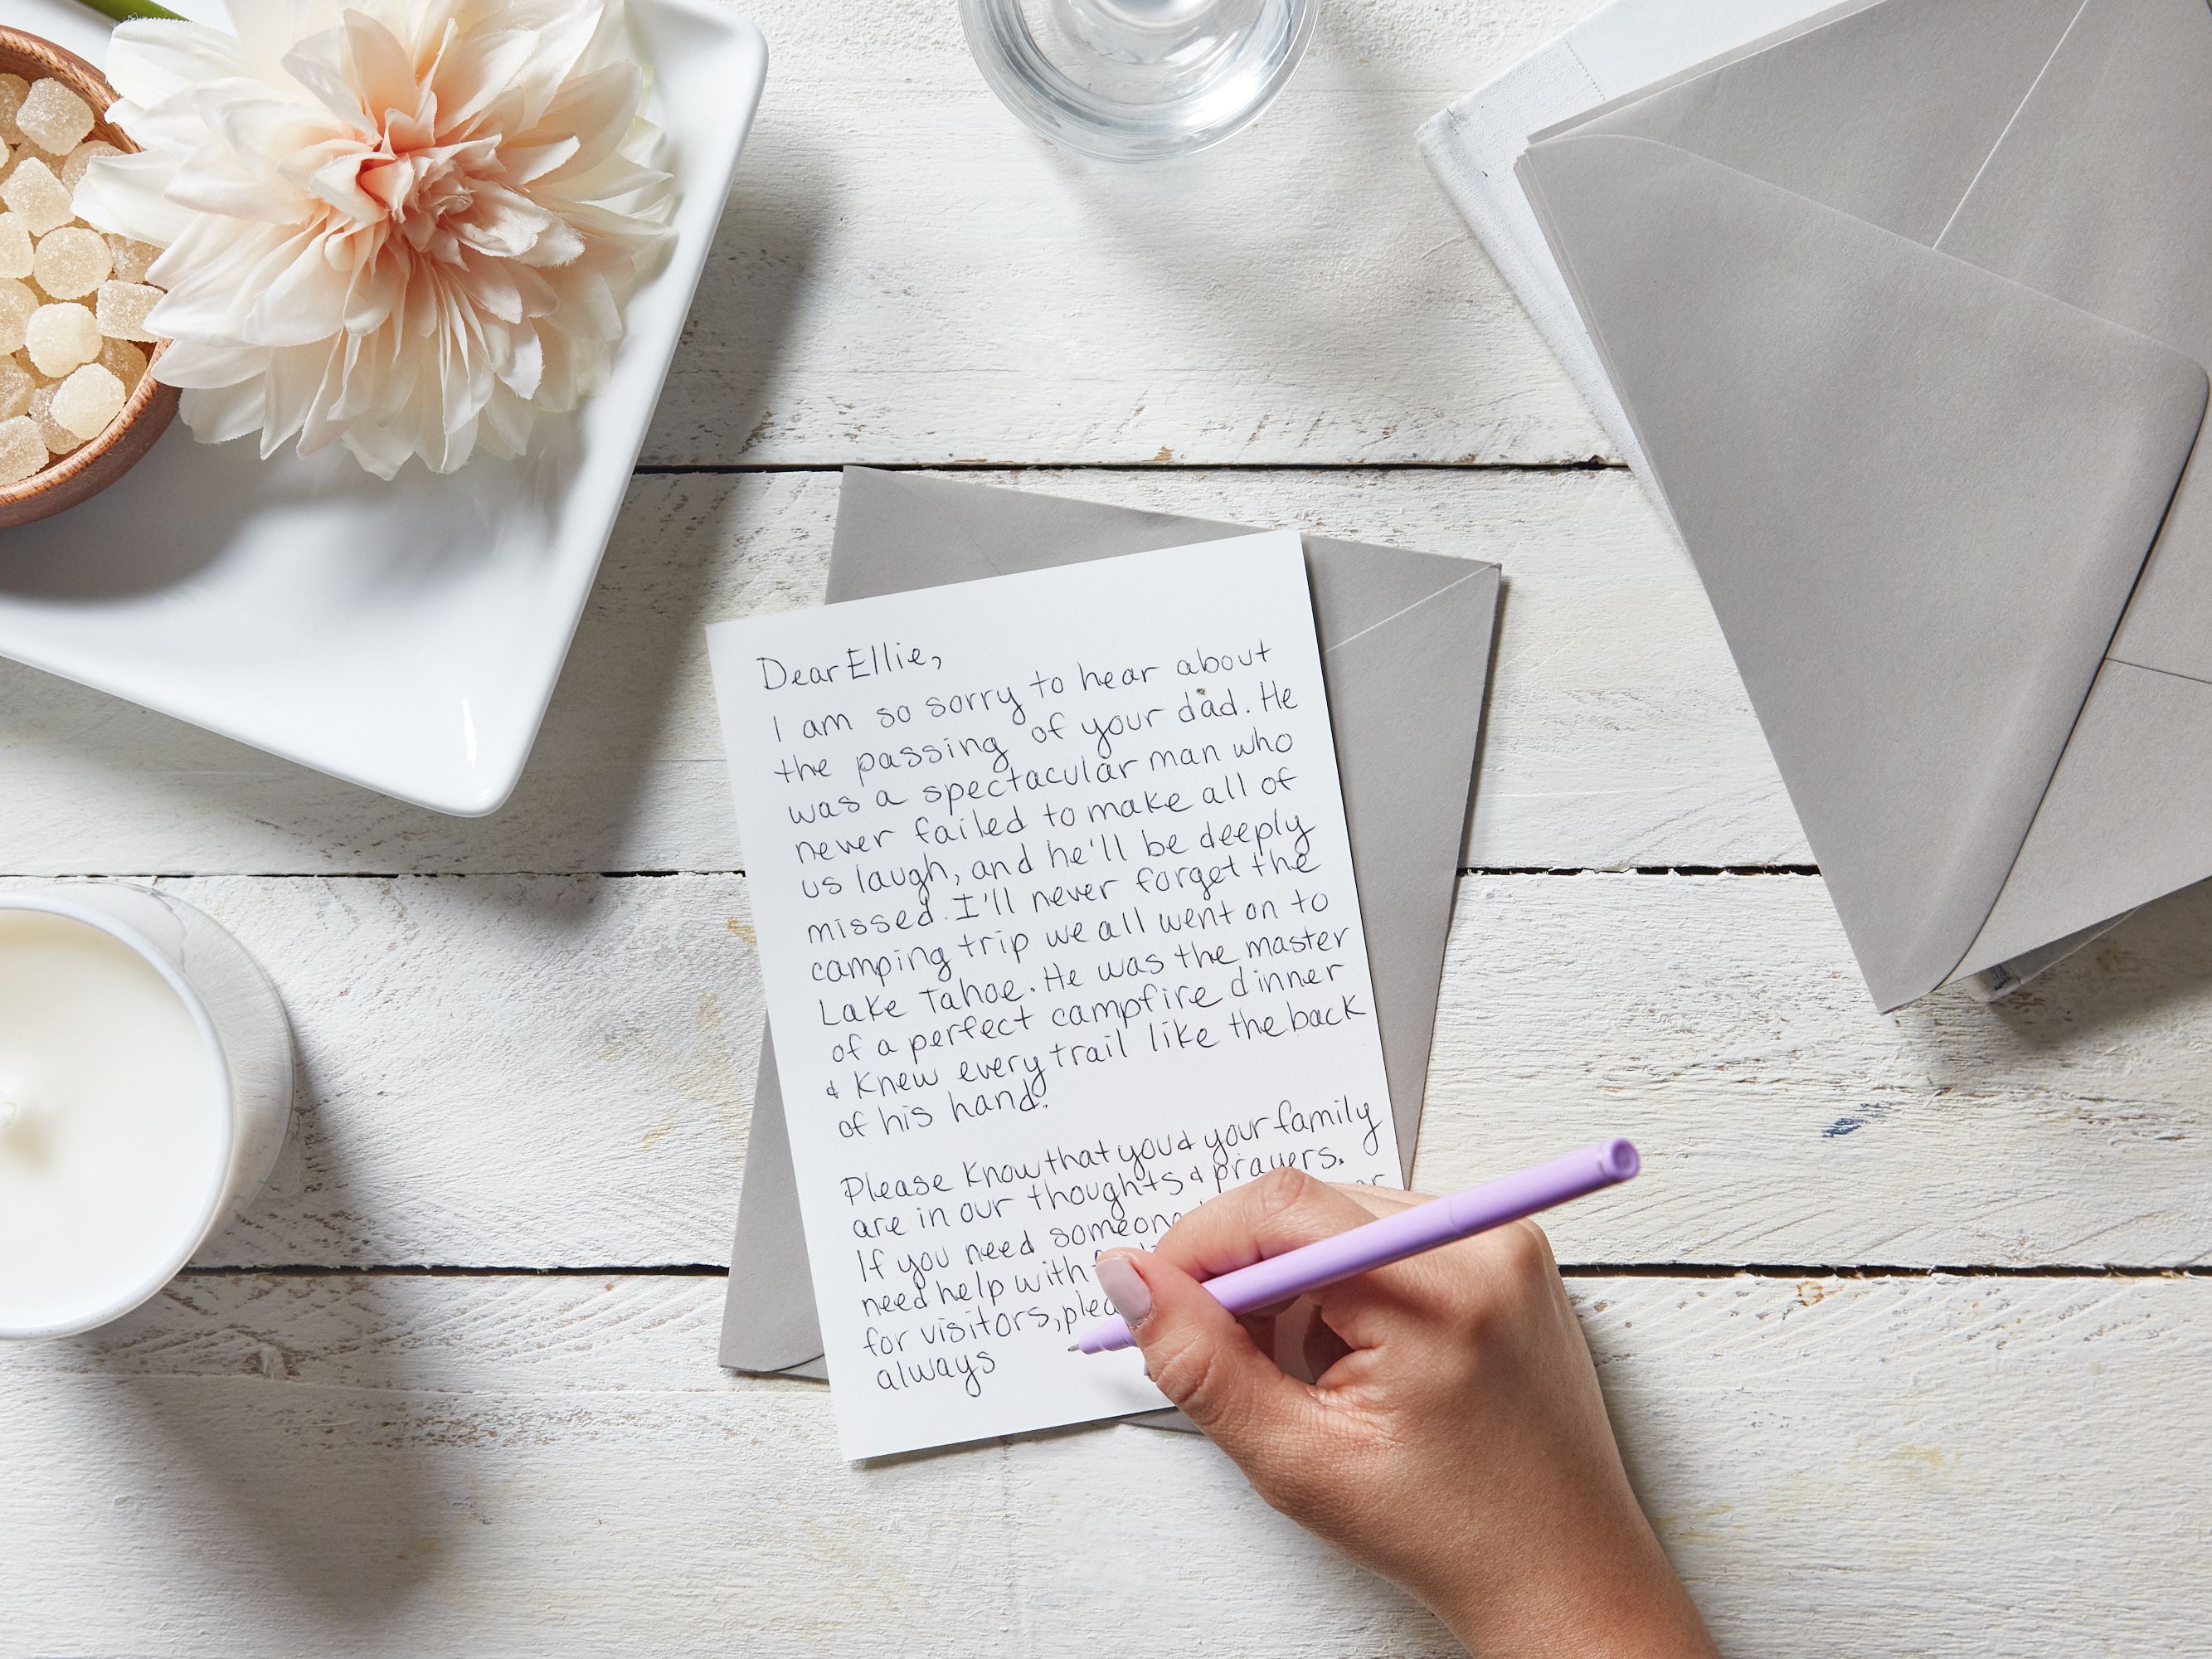 Dear Ellie,
I am so sorry to hear about
the passing of your dad. He
was a spectacular man who
never failed to make all of
us laugh, and he'll be deeply
missed. I'll never forget the
camping trip we all went on to
Lake Tahoe. He was the master
of a perfect campfire dinner
& knew every trail like the back
of his hand.
Please know that you & your family
are in our thoughts & prayers.
If you need someone
need help with
for visitors,
always